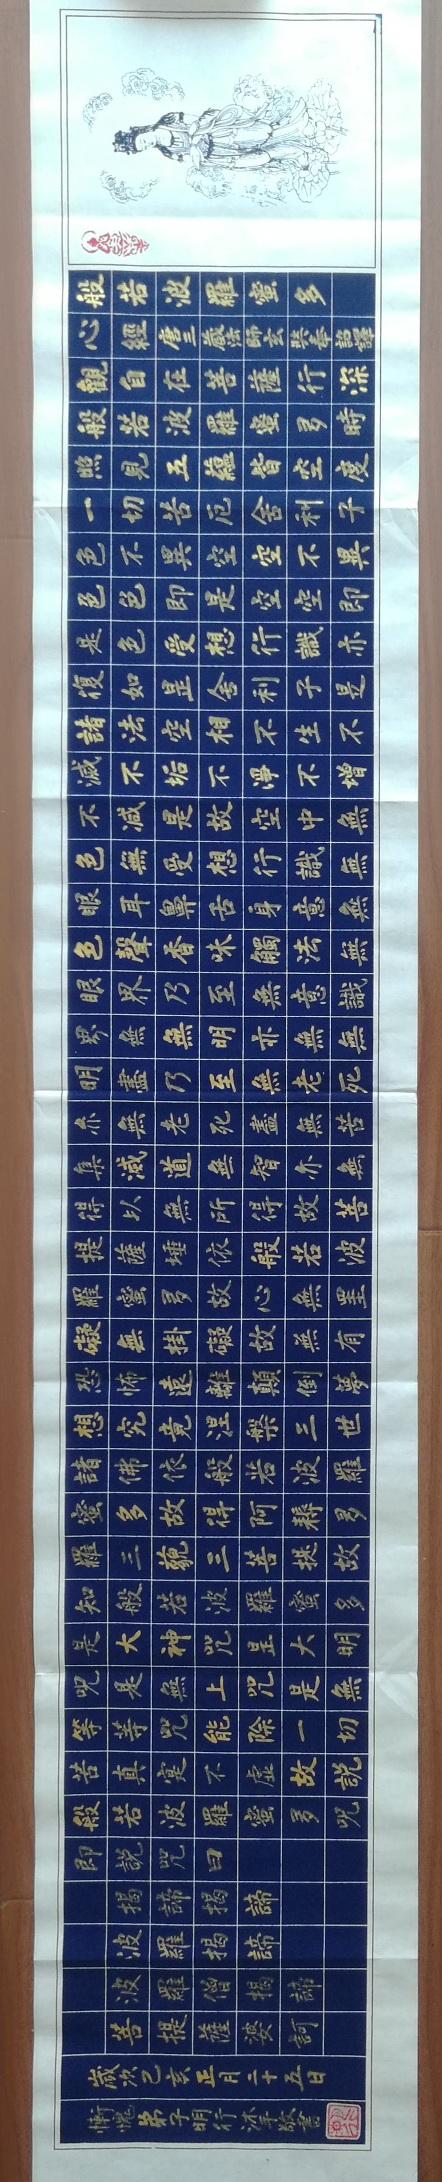 般若波羅蜜多
心經唐三藏法師玄奘奉詔譯
觀自在菩薩行深
般若波羅蜜多時
照見五蘊皆空度
一切苦厄舍利子
色不異空空不異
色色即是空空即
是色受想行識亦
復如是舍利子是
諸法空相不生不
滅不垢不淨不增
不減是故空中無
色無受想行識無
眼耳鼻舌身意無
色聲香味觸法無
眼界乃至無意識
界無無明亦無無
明盡乃至無老死
亦無老死盡無苦
集滅道無智亦無
得以無所得故菩
提薩埵依般若波
羅蜜多故心無罣
礙無掛礙故無有
恐怖遠離顛倒夢
想究竟涅槃三世
諸佛依般若波羅
蜜多故得阿耨多
羅三藐三菩提故
知般若波羅蜜多
是大神咒是大明
咒是無上咒是無
等等咒能除一切
苦真實不虛故說
般若波羅蜜多咒
即說咒曰
揭諦揭諦
波羅揭諦
波羅僧揭諦
菩提薩婆訶
歲次己亥正月二十五日
慚愧弟子明行沐手敬書